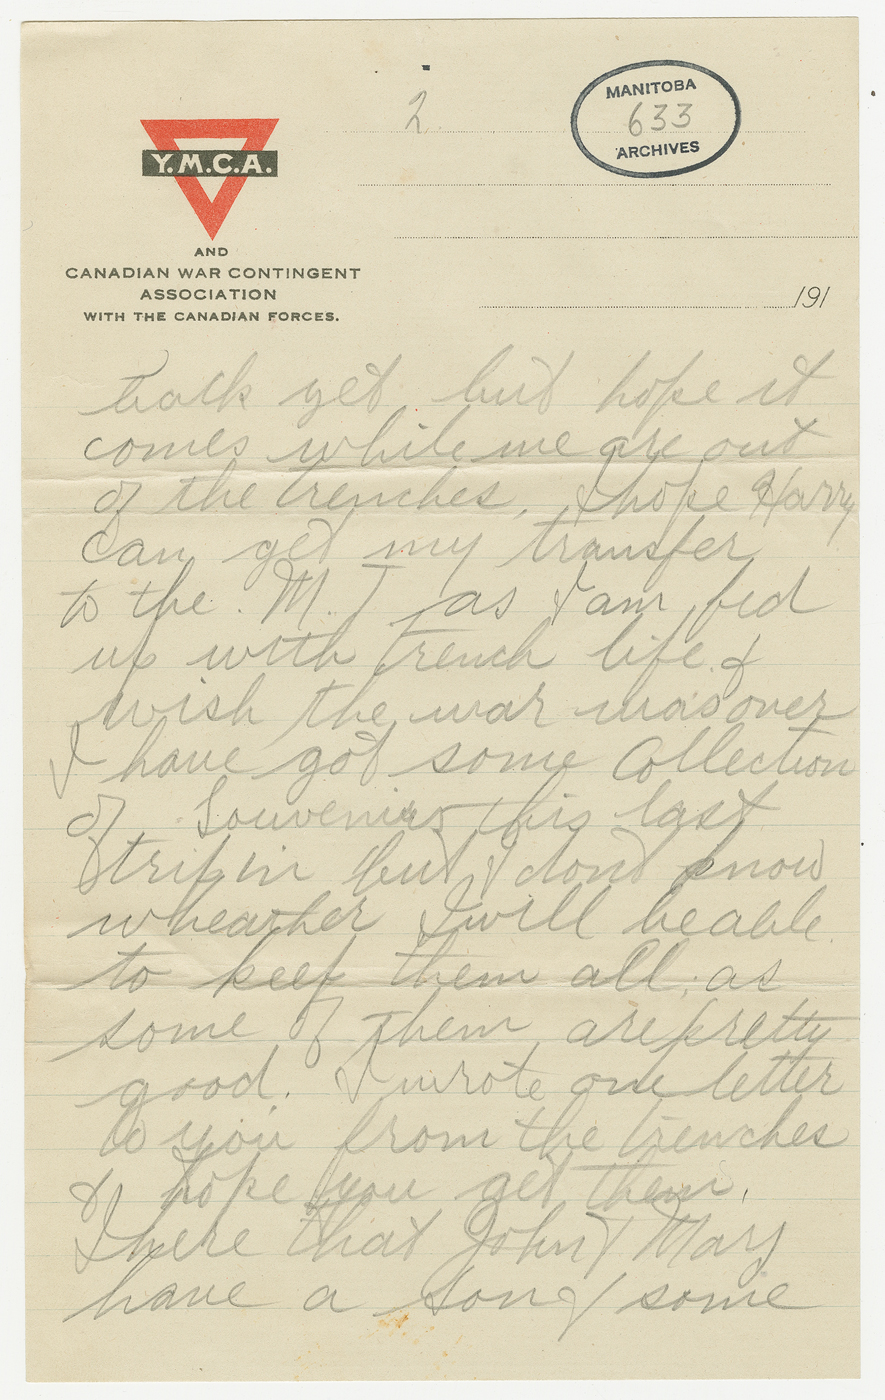 2
MANITOBA
633
ARCHIVES
Y.M.C.A.
AND
CANADIAN WAR CONTINGENT
ASSOCIATION
WITH THE CANADIAN FORCES.
191
back yet but hope it
comes while we are out
of the trenches, I hope Harry
can get my transfer
to the . M. T as I am fed
up with trench life &
wish the war was over
I have got some Collection
of Souvenirs this last
trip in but I dont know
wheather I will be able
to keep them all; as
some of them are pretty
good. I wrote one letter
to you from the trenches
& hope you get them.
I here that John & Mary
have a son & some